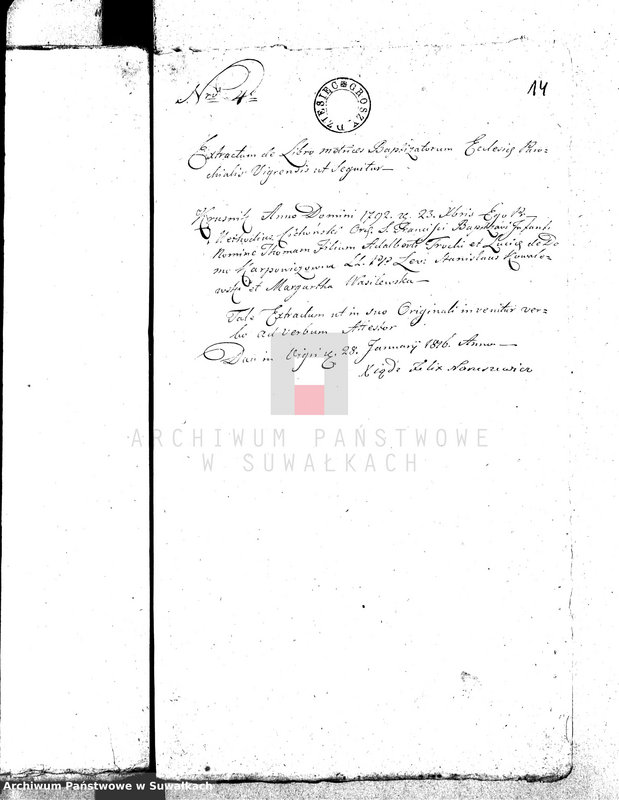 Nro 4to
DZIESIĘĆ GROSZY
14
Extractum de Libro metrices Baptizatorum Eclesię Paro=
chialis Vigrensis ut Sequitur
Krusnik Anno Domini 1792. d. 23. Xbris Ego P.
Methodius Ord. S. Francisci Baptizavi Infantem
Nomine Thomam Filium Adalberti Trocki et Lucię de Do
mo Karpowiczowna LL. PP Levi Stanislaus Kowale=
wski et Margartha Wasilewska
Tale Extractum ut in suo Originali invenitur ver=
bo ad verbum Attestor
Dan in Vigri d. 28. Januarij 1816. Anno
Xiądz Felix Naruszewicz
ARCHIWUM PAŃSTWOWE
W SUWAŁKACH
Archiwum Państwowe w Suwałkach